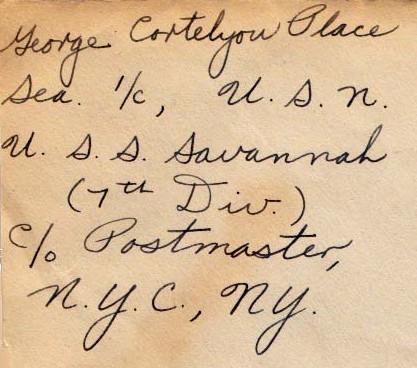 George Cortelyou Place
Sea. 1/c, U. S. N.
U. S. S. Savannah
(7th Div.)
c/o Postmaster,
N.Y.C., NY.